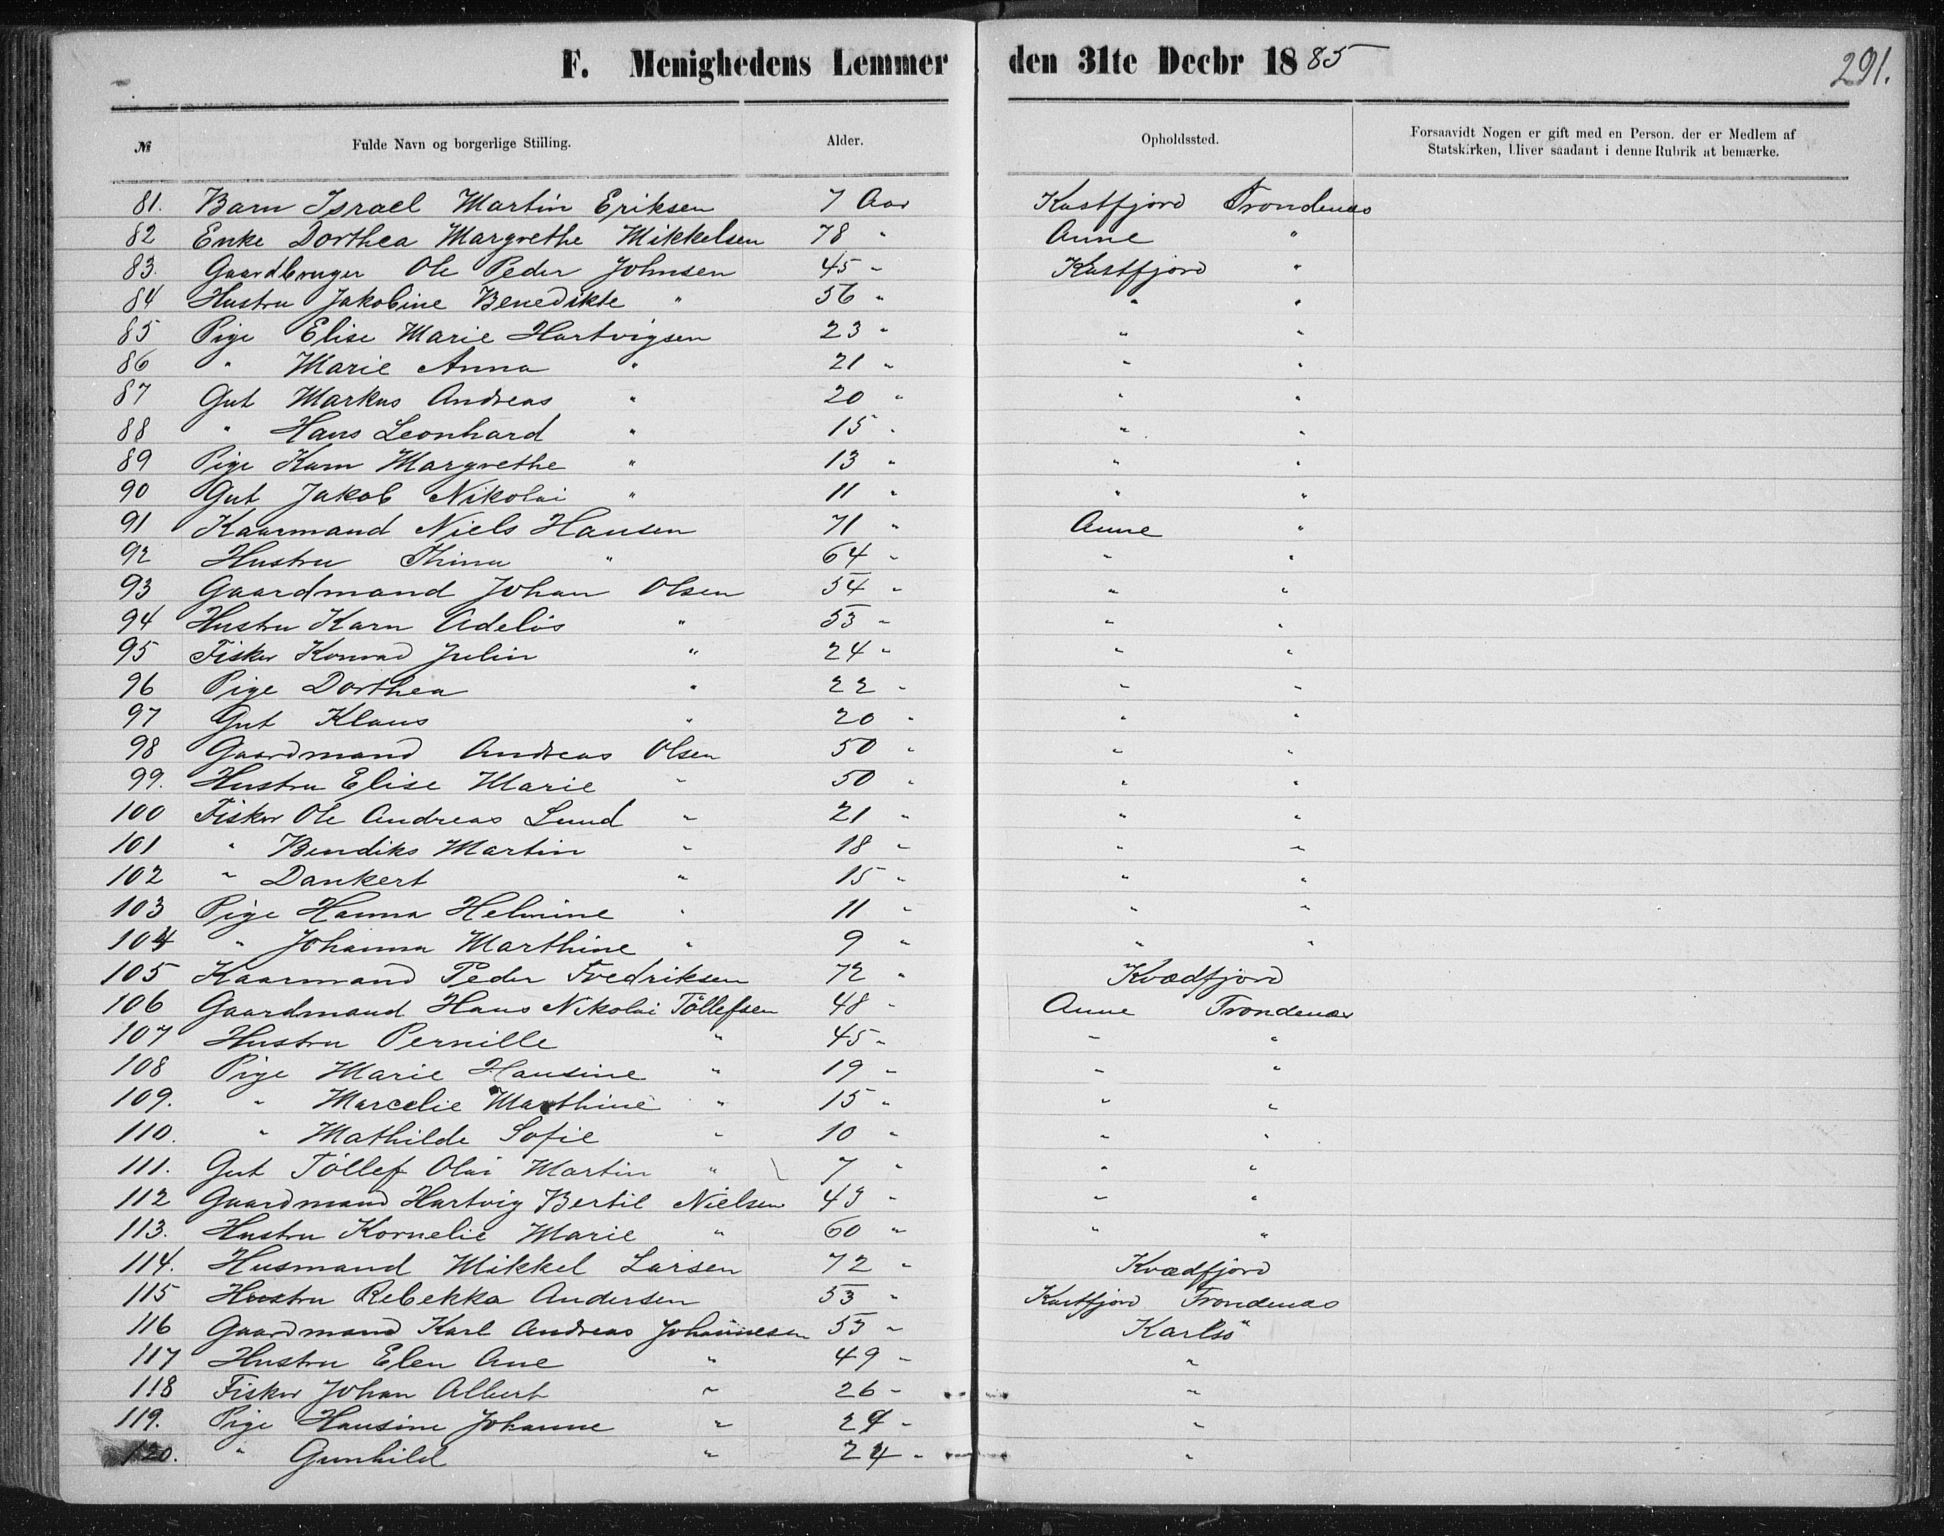 F. Menighedens Lemmer den 31te Decbr 1885 291.
№ Fulde Navn og borgerlige Stilling. Alder. Opholdssted. Forsaavidt Nogen er gift med en Person, der er Medlem af
Statskirken, bliver saadant i denne Rubrik at bemærke.
81. Barn Israel Martin Eriksen 7 Aar Kastfjord Trondenæs
82 Enke Dorthea Margrethe Mikkelsen 78 " Aune "
83. Gaardbruger Ole Peder Johnsen 45 " Kastfjord "
84 Hustru Jakobine Benedikte " 56 " " "
85 Pige Elise Marie Hartvigsen 23 " " "
86 " Marie Anna " 21 " " "
87 Gut Markus Andreas " 20 " " "
88 " Hans Leonhard " 15 " " "
89 Pige Karn Margrethe " 13 " " "
90 Gut Jakob Nikolai " 11 " " "
91 Kaarmand Niels Hansen 71 " Aune "
92 Hustru Thina " 64 " " "
93 Gaardmand Johan Olsen 54 " " "
94 Hustru Karn Adelös " 53 " " "
95 Fisker Konrad Julin " 24 " " "
96 Pige Dorthea " 22 " " "
97 Gut Klaus " 20 " " "
98 Gaardmand Andreas Olsen 50 " " "
99. Hustru Elise Marie " 50 " " "
100 Fisker Ole Andreas Lund " 21 " " "
101 " Bendiks Martin " 18 " " "
102 " Dankert " 15 " " "
103 Pige Hanna Helmine " 11 " " "
104 " Johanna Marthine " 9 " " "
105 Kaarmand Peder Fredriksen 72 " Kvædfjord
106 Gaardmand Hans Nikolai Töllefsen 48 " Aune Trondenæs
107 Hustru Pernille " 45 " " "
108 Pige Marie Hansine " 19 " " "
109. " Marcelie Marthine " 15 " " "
110. " Mathilde Sofie " 10 " " "
111. Gut Töllef Olai Martin " 7 " " "
112 Gaardmand Hartvig Bertil Nielsen 43 " " "
113. Hustru Kornelie Marie " 60 " " "
114. Husmand Mikkel Larsen 72 " Kvædfjord
115 Hustru Rebekka Andersen 53 " Kastfjord Trondenæs
116 Gaardmand Karl Andreas Johannesen 53 " Karlsö
117 Hustru Elen Ane " 49 " "
118 Fisker Johan Albert " 26 " "
119. Pige Hansine Johanne " " "
120. " Gunhild " 24 " "